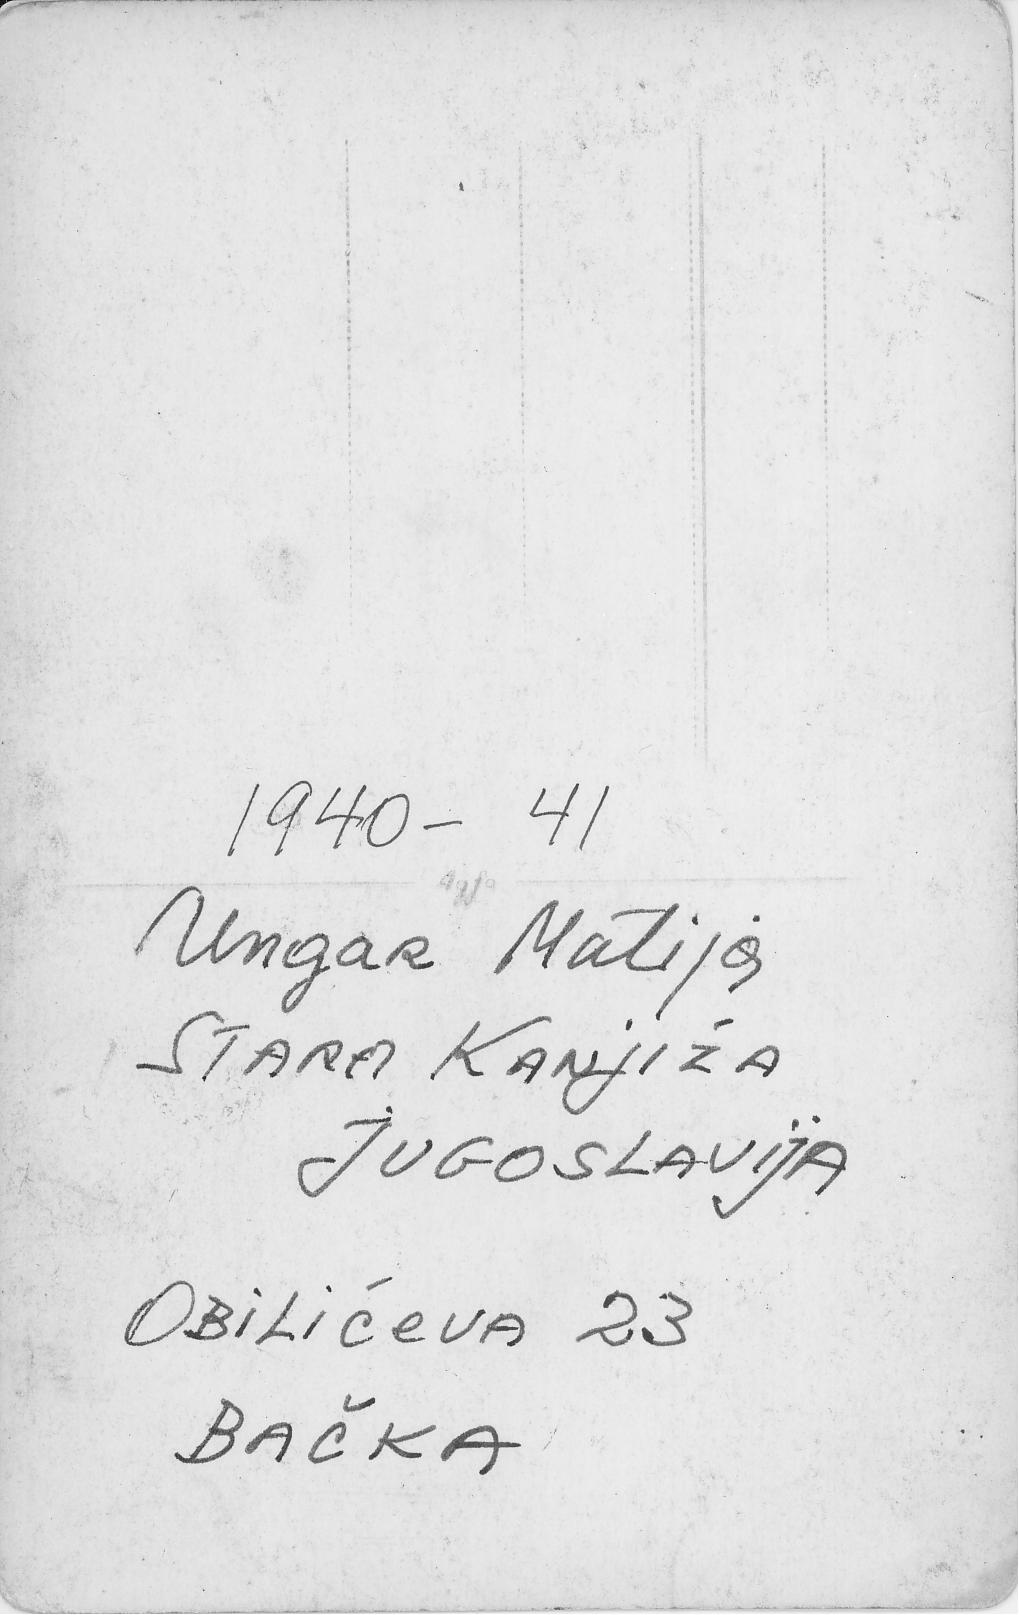 1940- 41
Agfa
Ungar Matija
STARA KANJIŽA
JUGOSLAVIJA
OBILIĆEVA 23
BAČKA